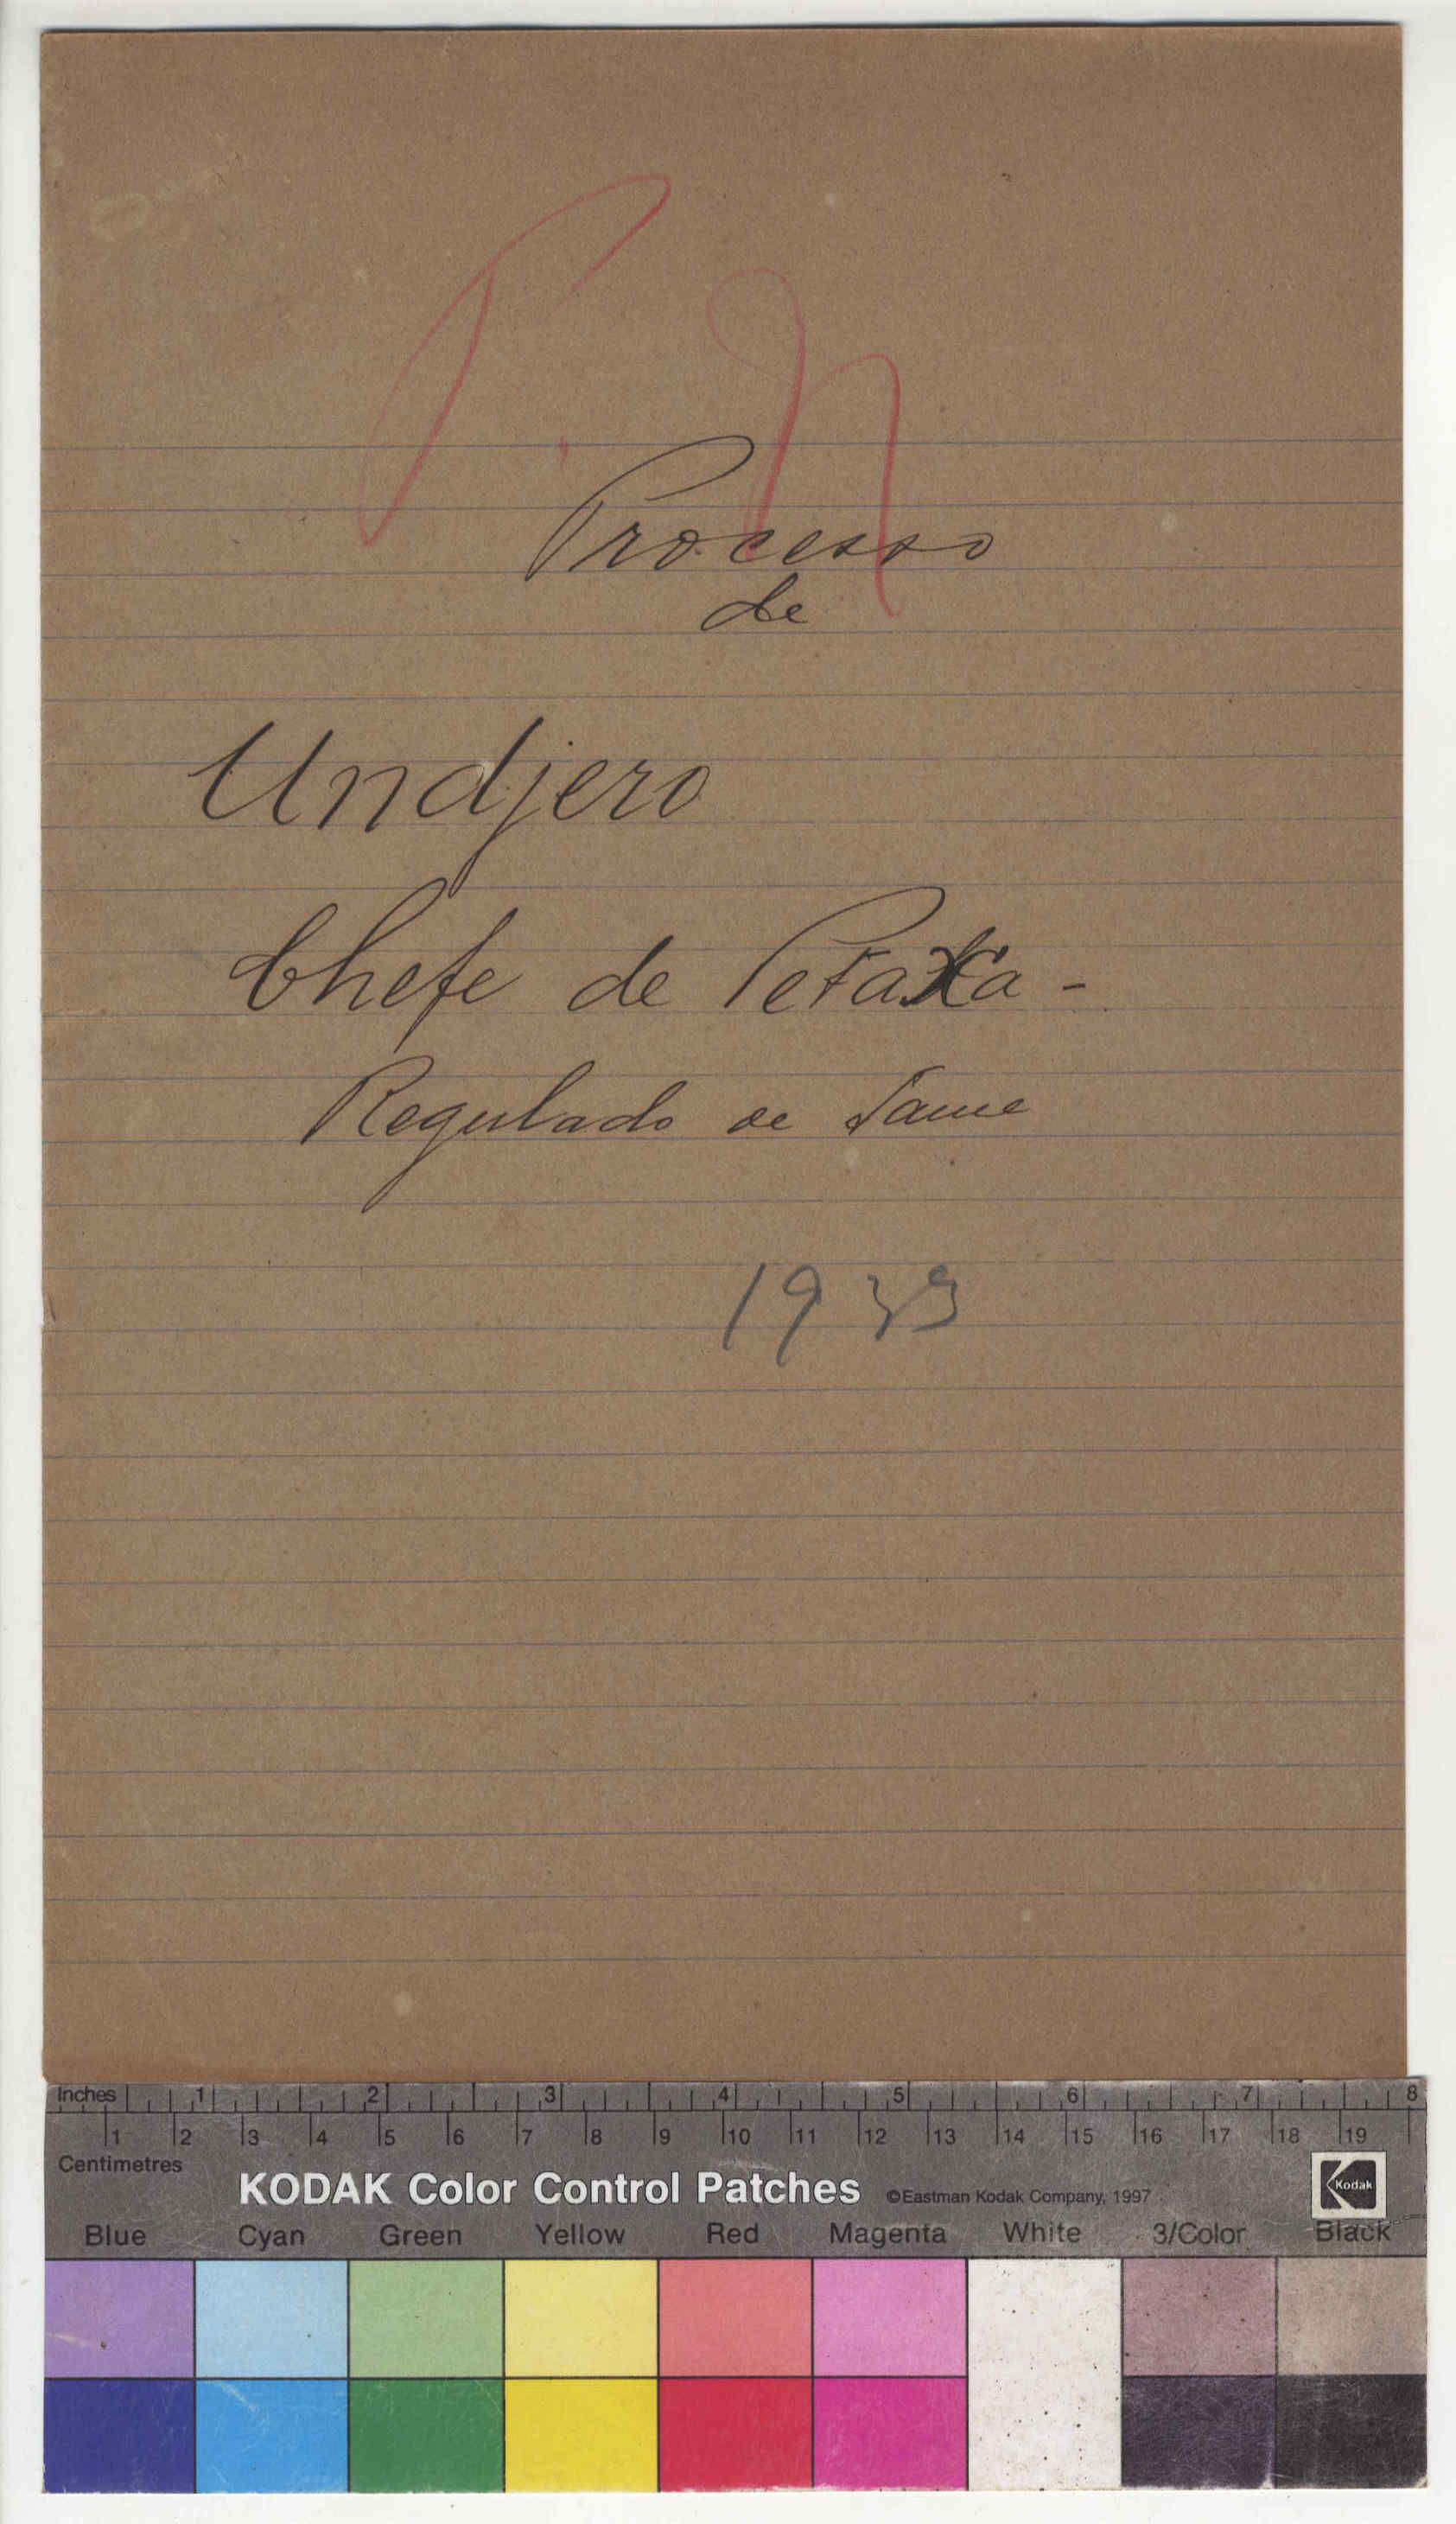 P. N
Processo
de
Undjero
Chefe de Petaxa -
Regulado de Jame
1939
Inches 1 2 3 4 5 6 7 8
1 2 3 4 5 6 7 8 9 10 11 12 13 14 15 16 17 18 19
Centimetres
KODAK Color Control Patches ©Eastman Kodak Company, 1997 Kodak
Blue Cyan Green Yellow Red Magenta White 3/Color Black